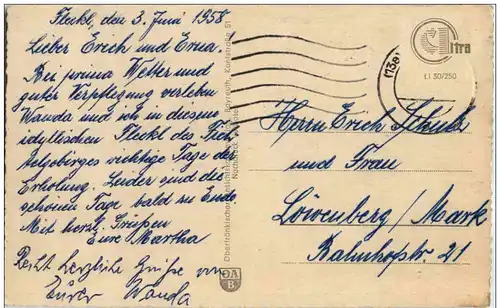 Fleckl, den 3. Juni 1958
Lieber Erich und Erna.
Bei prima Wetter und
guter Verpflegung verleben
Wanda und ich in diesem
idyllischen Fleckl des Fich-
telgebirges richtige Tage der
Erholung. Leider sind die
schönen Tage bald zu Ende.
Mit herzl. Grüßen
Eure Martha
Recht herzliche Grüße von
Eurer Wanda
Bayreuth, Kanzstraße 51
Ultra
Ll 30/250
(13a)
Herrn Erich Schulz
und Frau
Löwenberg/Mark
Bahnhofstr. 21